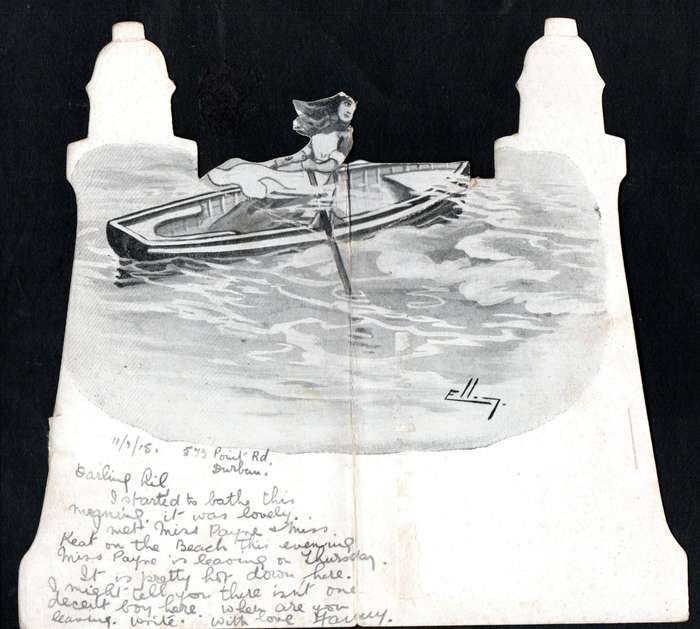 Ell..
11/3/15. 573 Point Rd
Durban.
Darling Lil,
I started to bathe this
morning, it was lovely.
I met Miss Payne & Miss
Keat on the Beach this evening
Miss Payne is leaving on Thursday.
It is pretty hot down here.
I might tell you there isnt one
decent boy here. When are you
leaving. Write. With love